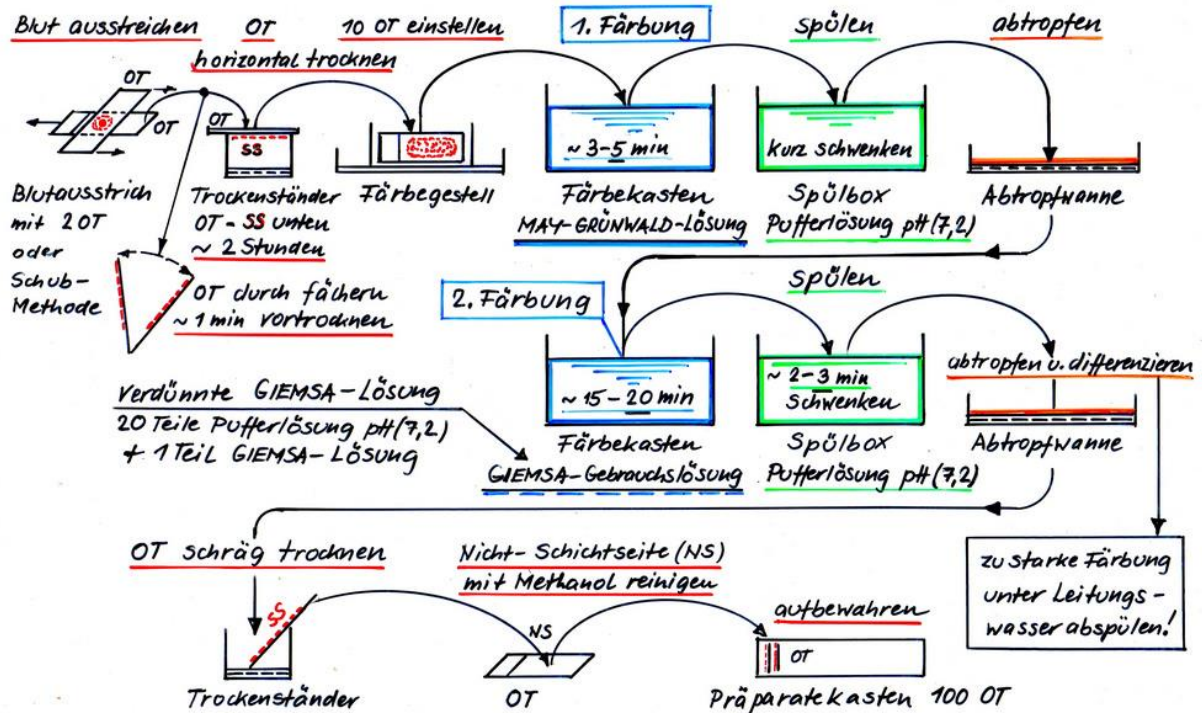 Blut ausstreichen
OT
horizontal trocknen
10 OT einstellen
1. Färbung
spülen
abtropfen
OT
OT
OT
SS
~ 3-5 min
kurz schwenken
Blutausstrich
mit 2 OT
oder
Schub-
Methode
Trockenständer
OT - SS unten
~ 2 Stunden
Färbegestell
Färbekasten
MAY-GRÜNWALD-LÖSUNG
Spülbox
Pufferlösung pH (7,2)
Abtropfwanne
OT durch fächern
~ 1 min vortrocknen
2. Färbung
spülen
abtropfen u. differenzieren
~ 15-20 min
~ 2-3 min
schwenken
verdünnte GIEMSA-Lösung
20 Teile Pufferlösung pH (7,2)
+ 1 Teil GIEMSA-Lösung
Färbekasten
GIEMSA-Gebrauchslösung
Spülbox
Pufferlösung pH (7,2)
Abtropfwanne
OT schräg trocknen
Nicht-Schichtseite (NS)
mit Methanol reinigen
aufbewahren
zu starke Färbung
unter Leitungs-
wasser abspülen!
SS
NS
OT
Trockenständer
OT
Präparatekasten 100 OT